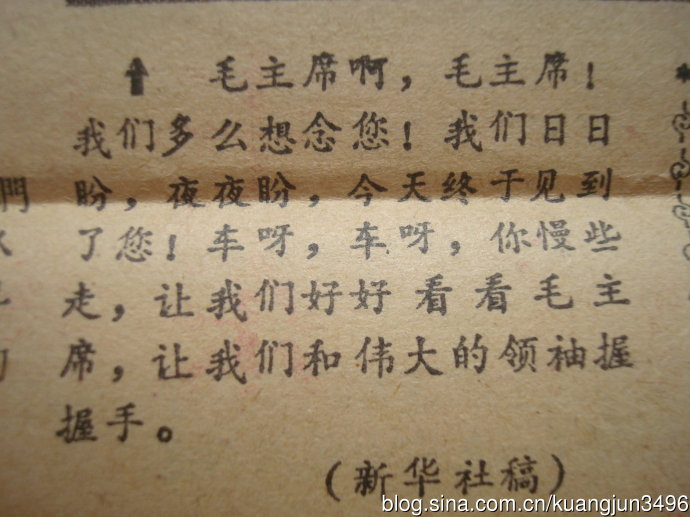 毛主席啊，毛主席！
我们多么想念您！我们日日
盼，夜夜盼，今天终于见到
了您！车呀，车呀，你慢些
走，让我们好好看看毛主
席，让我们和伟大的领袖握
握手。
（新华社稿）
們
blog.sina.com.cn/kuangjun3496